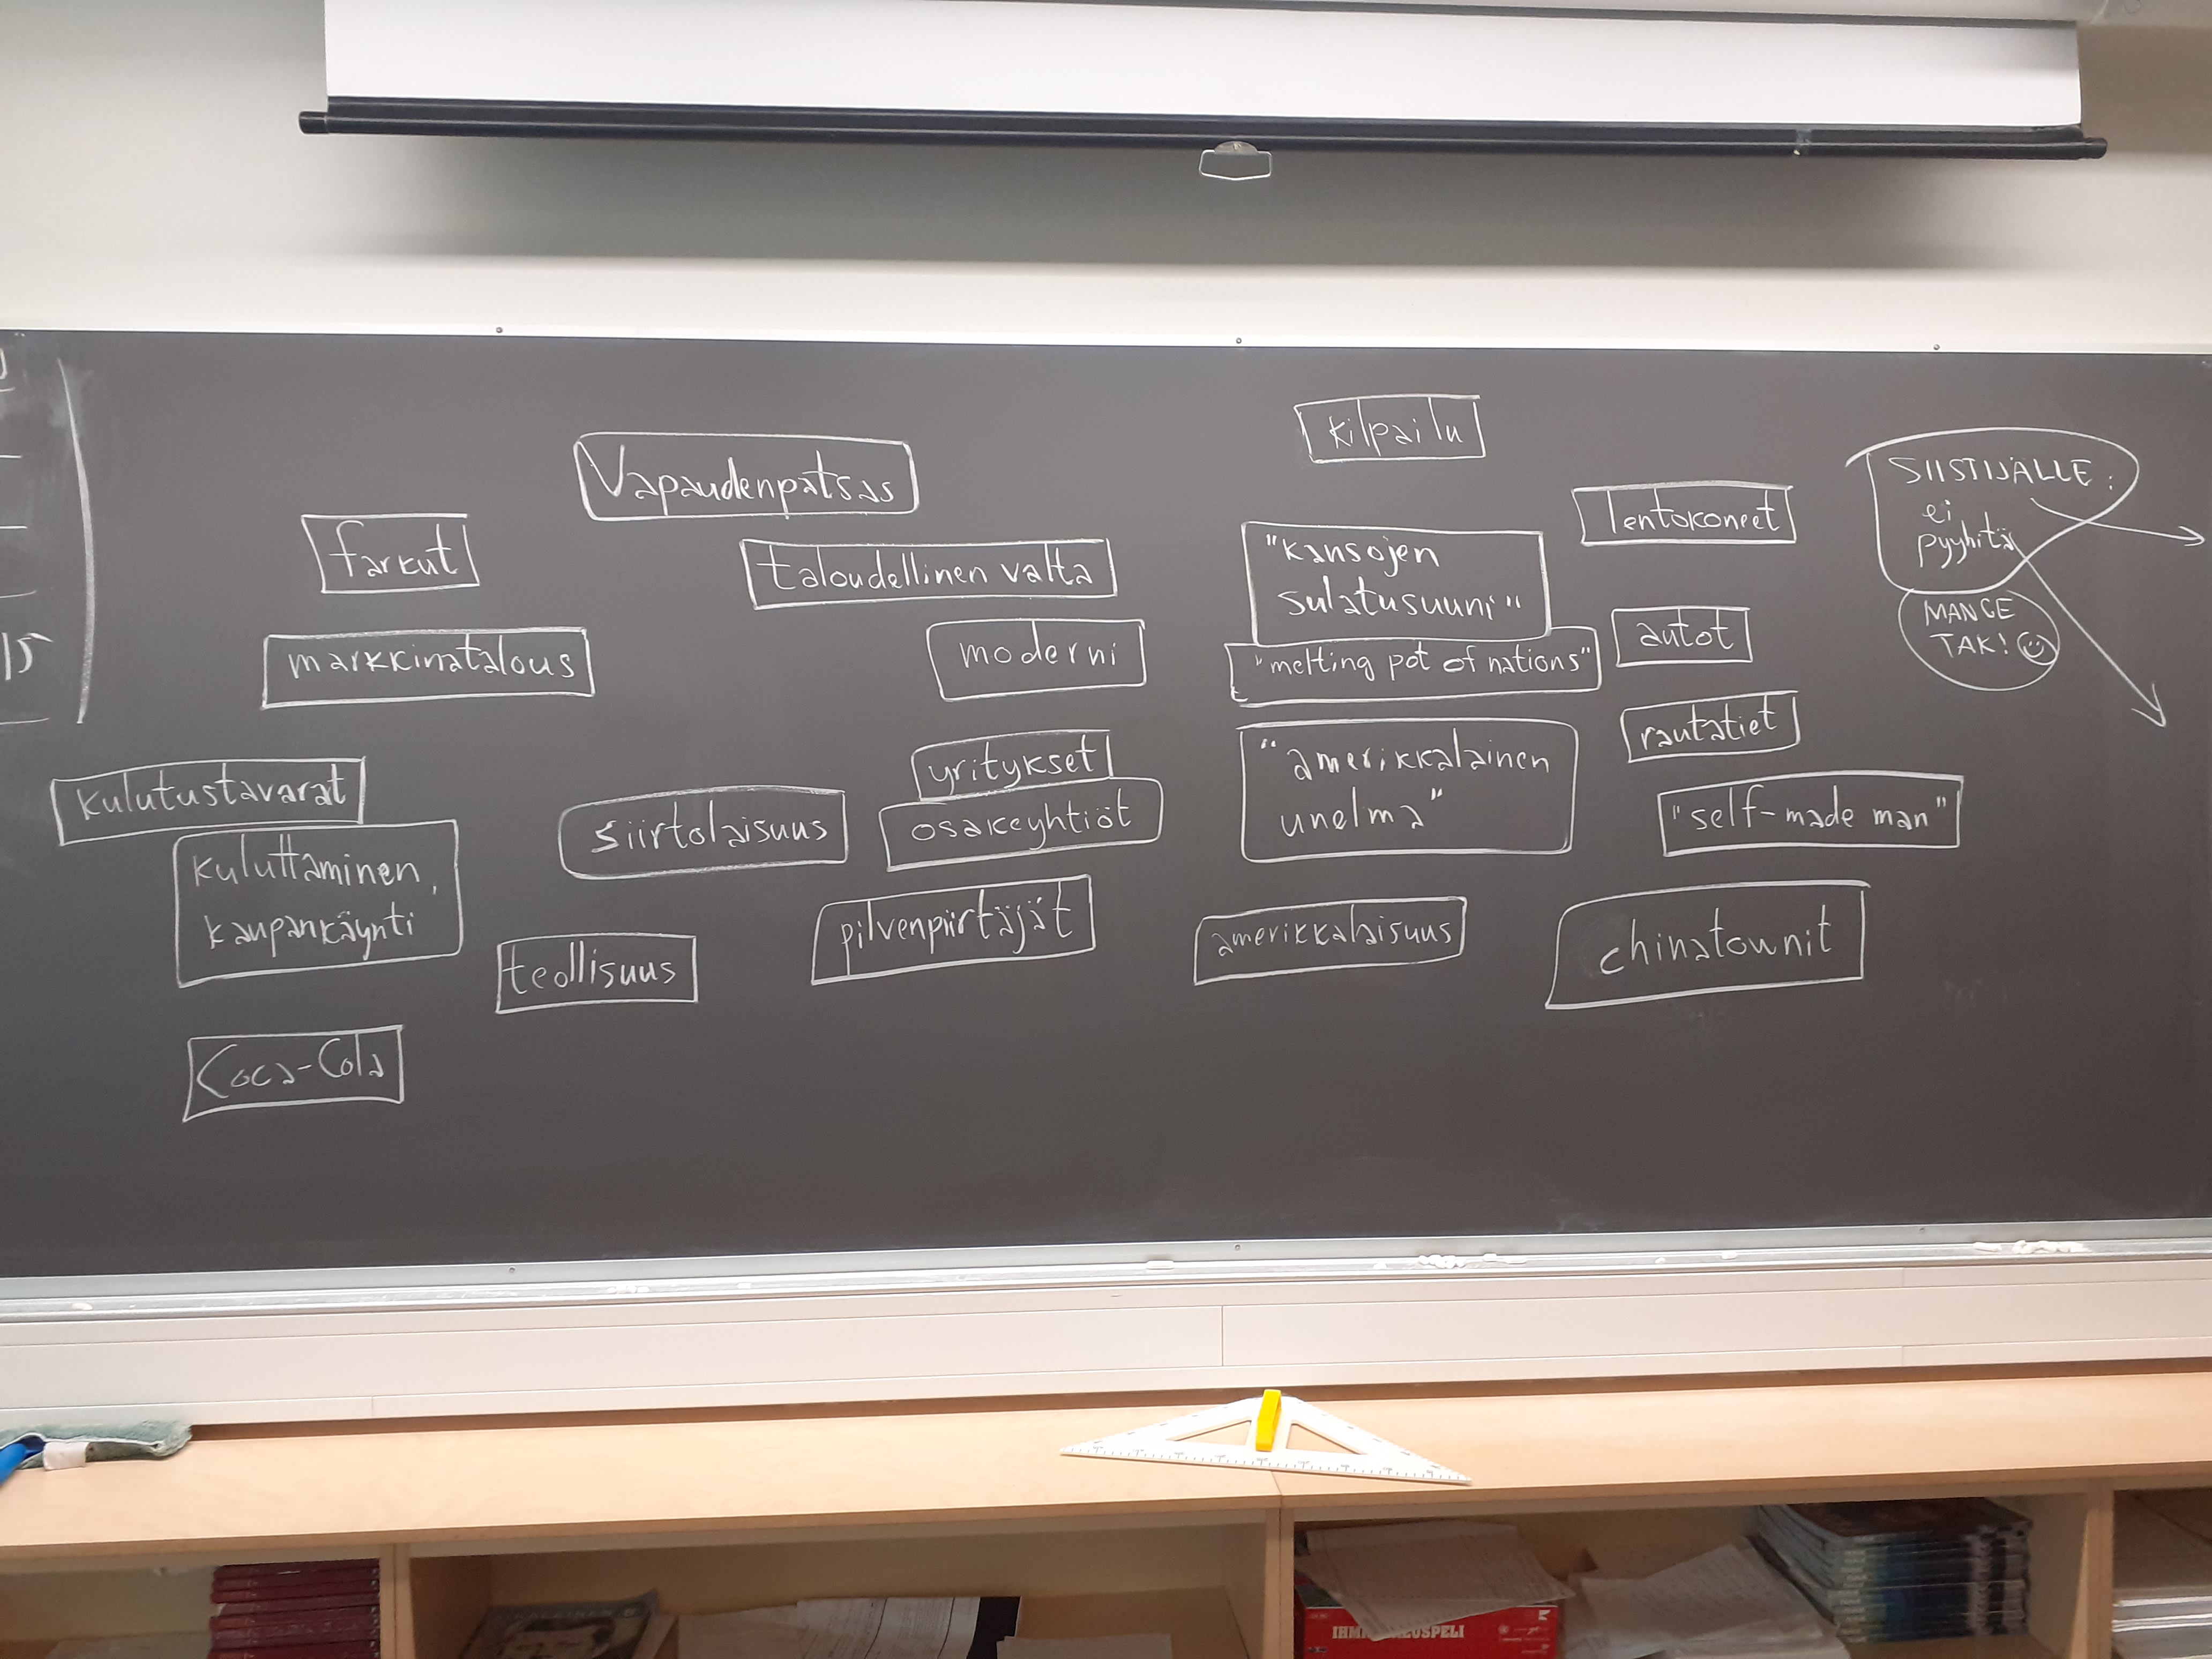 15
Vapaudenpatsas
farkut
taloudellinen valta
markkinatalous
moderni
kulutustavarat
kuluttaminen,
kaupankäynti
siirtolaisuus
yritykset
osakeyhtiöt
teollisuus
pilvenpiirtäjät
Coca-Cola
kilpailu
lentokoneet
"kansojen
sulatusuuni"
"melting pot of nations"
autot
rautatiet
"amerikkalainen
unelma"
"self-made man"
amerikkalaisuus
chinatownit
SIISTIJÄLLE:
ei
pyyhitä
MANGE
TAK!